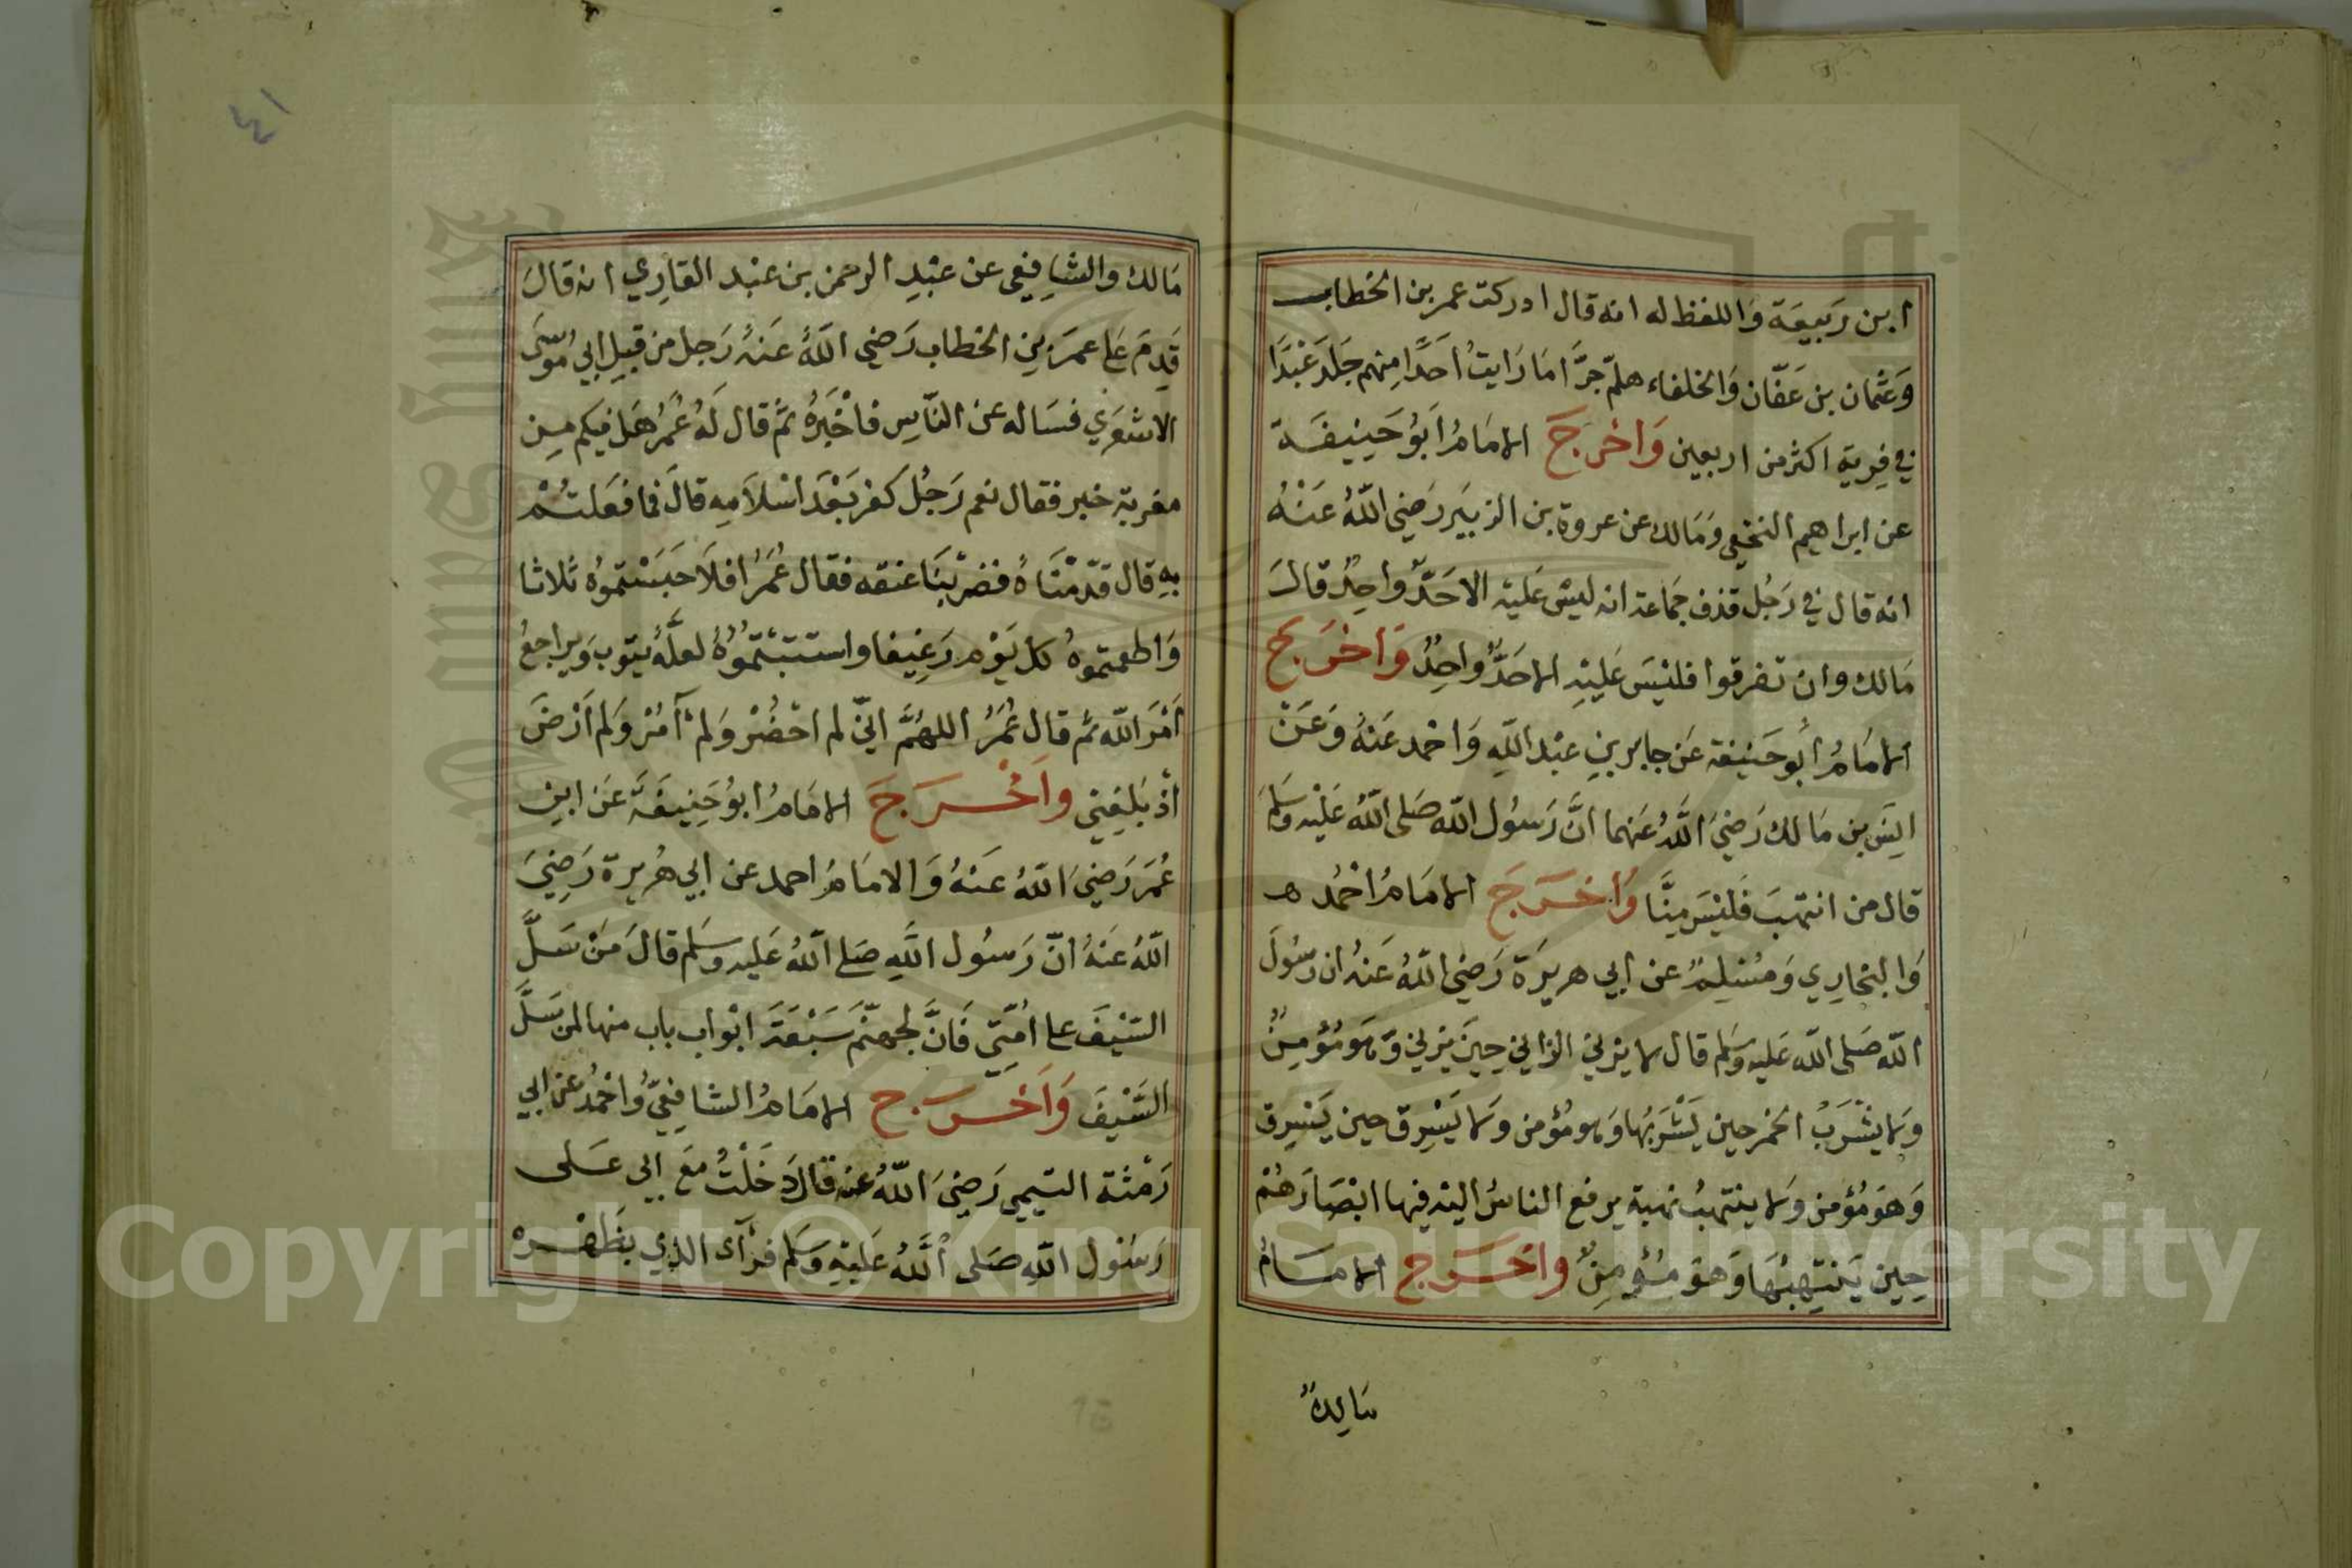 ابن رَبيعَة وَاللفظ له انه قال ادركت عمر بن الخطاب
وَعثمان بن عَفّان وَالخلفاء هلمّ جرَّا مَا رَايتُ اَحَدًا مِنهم جَلدَ عَبْدًا
في فِرية اكثر من اربعين وَاخرَجَ الامَامُ اَبُو حَنِيفَة
عن ابراهيم النخعي وَمَالك عن عروة بن الزبَير رَضِي اللهُ عَنْهُ
انه قال في رَجُل قذف جَماعة انه ليسَ عَليْه الاحَدٌّ واحِدٌ قالَ
مَالك وان تفرقوا فليْسَ عَليْهِ الاحَدٌّ واحِدٌ وَاخرَج
الامَامُ اَبُو حَنيفة عَن جابر بنِ عبْد اللّهِ وَاحْمد عَنْهُ وَعَنْ
انَس بن مَالك رَضيَ اللَّهُ عَنهما انَّ رَسُول اللّه صَلى اللّهُ عَليْه وَسَلمَ
قال من انتهبَ فَليْسَ مِنَّا وَاخرَجَ الامَامُ احْمُد هـ
وَالبخارِي وَمُسْلِمٌ عن ابي هريرَة رَضي اللّهُ عَنهُ ان رَسُولَ
اللّه صَلى اللّه عَليه وسَلم قال لا يزني الزاني حِينَ يزني وَهوَ مُؤمِنٌ
وَلا يشْرَبُ الخمر حين يَشْرَبُهَا وَهو مُؤمن وَلا يَسْرق حين يَسْرق
وَهوَ مُؤمن وَلا ينتهبُ نهبة يرفع الناسُ اليْه فيها ابْصَارَهُمْ
حِين يَنتِهبُهَا وَهوَ مُؤمِنٌ واخرَج الامَامُ
مَالك
٤١
مَالك والشافِعي عن عبْدِ الرحمن بن عبْد القارِي انه قالَ
قَدِمَ عَلى عمَر بنِ الخطاب رَضي اللّهُ عَنهُ رَجل من قِبلِ ابي مُوسَى
الاشعَري فسَاله عن النّاسِ فاخْبَرهُ ثمَّ قال لَهُ عُمَرُ هَل فيكم مِن
مغربة خبر فقال نعم رَجُل كفر بَعْدَ اسْلامِه قالَ فما فعَلتُمْ
بِهِ قال قدّمْنَاهُ فضرَبْنَا عنقه فقال عُمَرُ افلاَ حَبَسْتموُه ثلاثا
وَاطعمتموهُ كل يَوْم رَغِيفا واستتبْتُموُهُ لعلَّهُ يتوب وَيراجعُ
اَمْرَ اللّه ثمّ قال عُمَرُ اللهُمَّ انّي لم احْضُرْ وَلمْ آمُرْ وَلم اَرْضَ
اذْ بَلغِني وَاَخْرَجَ الامَامُ ابوُ حَنِيفَةَ عَن ابنِ
عُمَر رَضيَ اللّهُ عَنهُ وَالامَامُ احمد عن ابي هُريرة رَضِيَ
اللّهُ عَنهُ انّ رَسُول اللَّهِ صَلى اللّهُ عَليه وسَلم قالَ مَنْ سَلَّ
السّيْفَ على اُمّتِي فَانَّ لجهنّمَ سَبْعَةَ ابْواب باب منها لمن سَلَّ
السَّيْفَ وَاَخرَج الامَامُ الشافِعِيُّ وَاحْمُد عن ابي
رَمْثَة التيمي رَضيَ اللّهُ عنه قالَ دَخَلْتُ معَ ابي عَلى
رَسُول اللّهِ صَلى اللَّهُ عَليْهِ وَسَلم فرَآى الذِي بظَهْرِه
Copyright © King Saud University